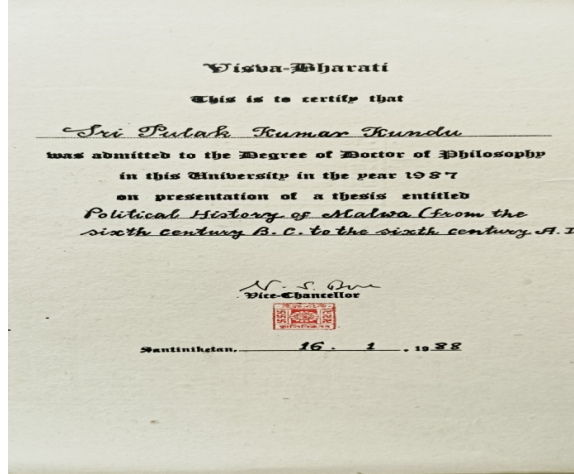 Visva-Bharati
This is to certify that
Sri Pulak Kumar Kundu
was admitted to the Degree of Doctor of Philosophy
in this University in the year 1987
on presentation of a thesis entitled
Political History of Malwa (from the
sixth century B. C. to the sixth century A. D
Vice-Chancellor
Santiniketan, 16 . 1 . 1988